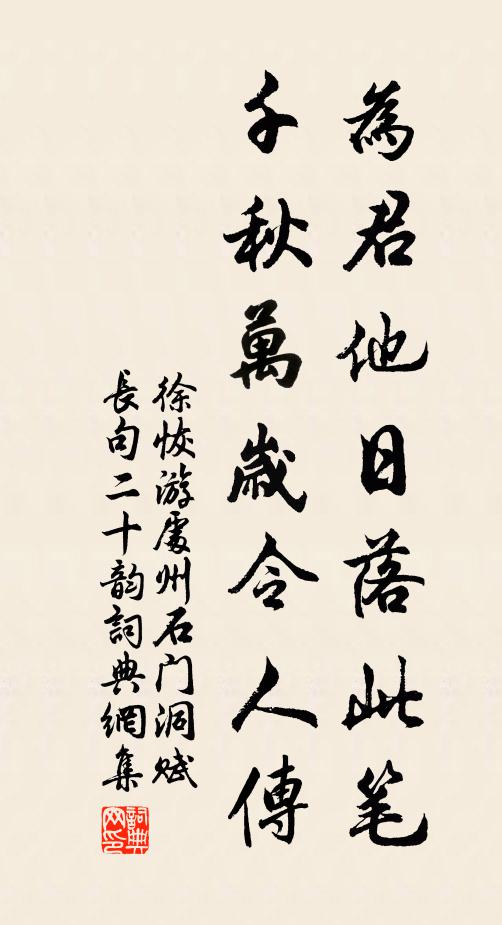 為君他日落此笔
千秋萬歲令人傳
徐恢游處州石门洞赋
長句二十韵詞典網集
詞典
网印